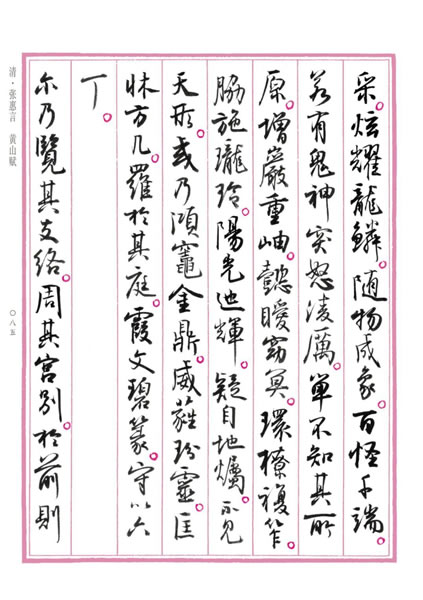 采。炫耀龍鱗。随物成象。百怪千端。
若有鬼神突怒淩厲。單不知其所
原。增巖重岫。懿曖窈冥。環橑複笮。
脇施瓏玲。陽光迆輝。疑自地爥。不見
天形。或乃澒竈金鼎。威蕤玢靈。匡
牀方几。羅於其庭。霞文碧篆。守以六
丁。
尓乃覽其支络。周其宫别。於前則
清·张惠言 黄山赋
〇八五